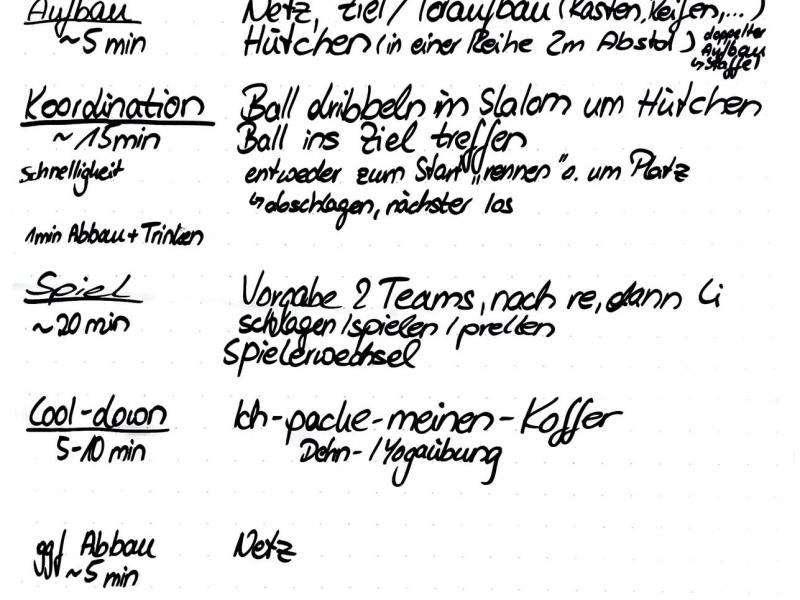 Aufbau Netz, Ziel / Toraufbau (Kasten, Reifen, ...)
~5 min Hütchen (in einer Reihe 2m Abstd) doppelter
Aufbau
↳ Staffel
Koordination Ball dribbeln im Slalom um Hütchen
~15min Ball ins Ziel treffen
Schnelligkeit entweder zum Start "rennen" o. um Platz
↳ abschlagen, nächster los
1min Abbau + Trinken
Spiel Vorgabe 2 Teams, nach re, dann Li
~20 min schlagen / spielen / prellen
Spielerwechsel
Cool-down Ich-packe-meinen-Koffer
5-10 min Dehn- / Yogaübung
ggf Abbau Netz
~5 min